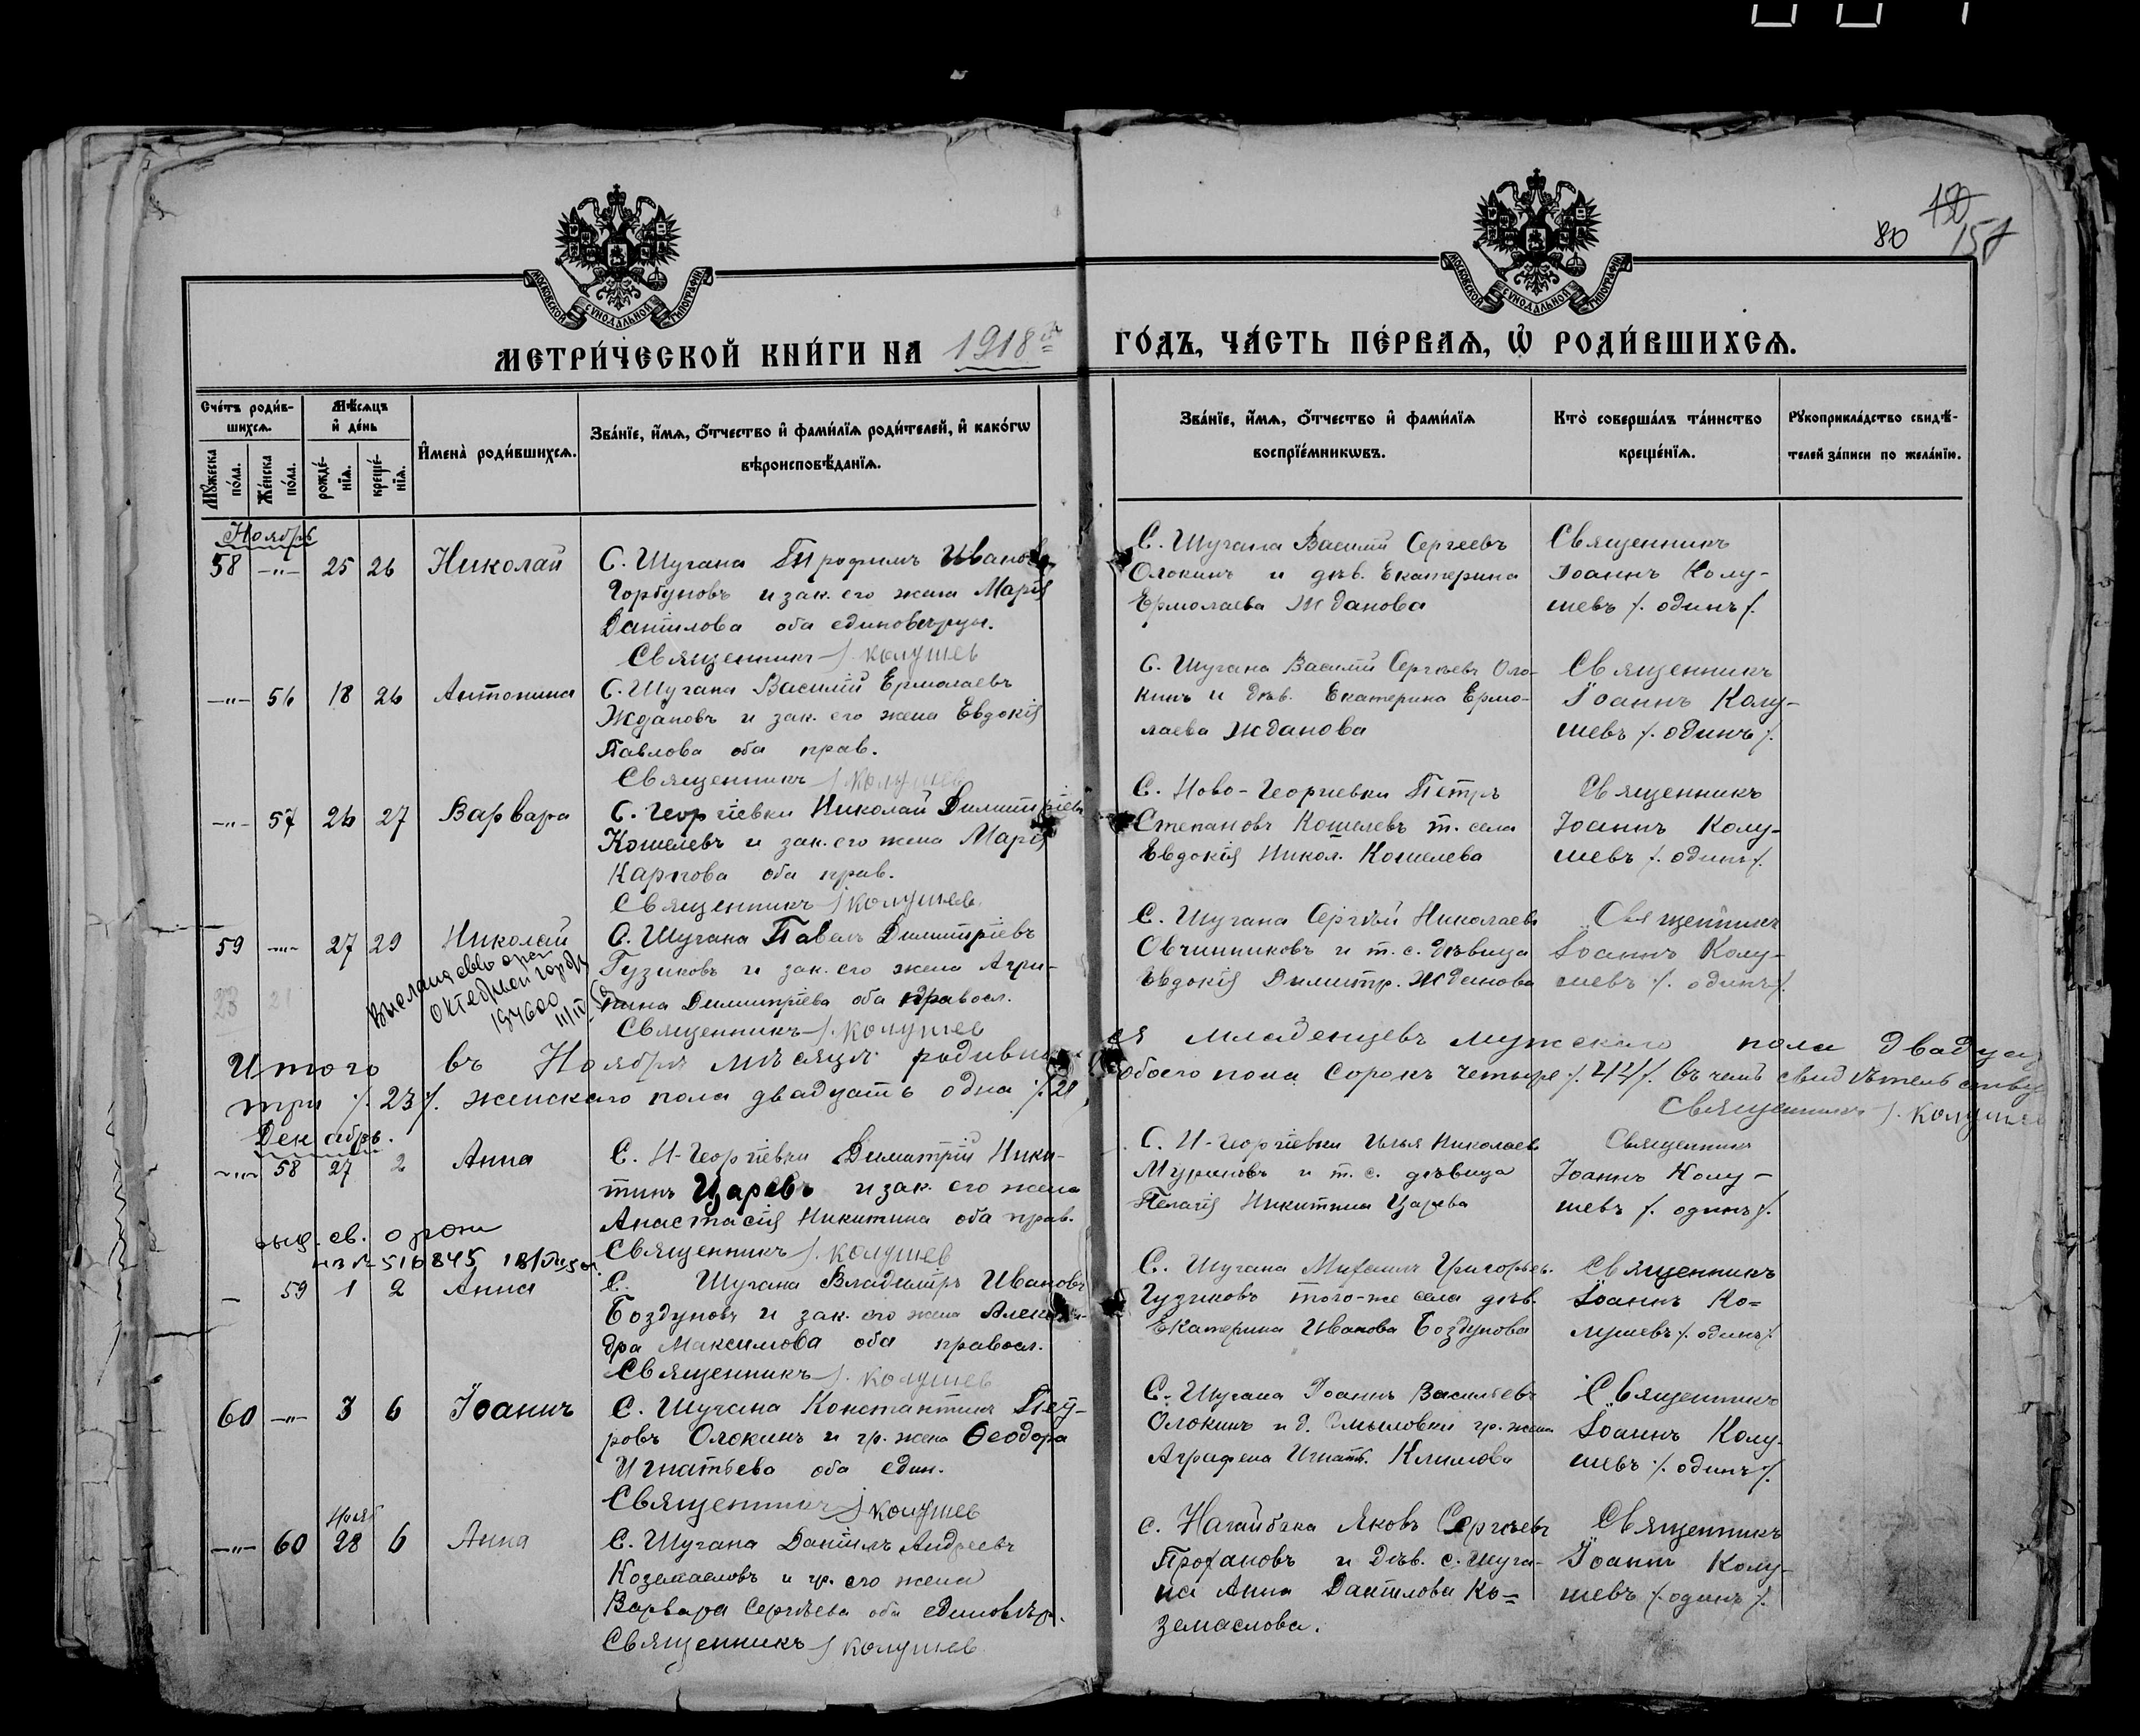 80
150
157
МОСКОВСКОЙ СѴНОДАЛЬНОЙ ТИПОГРАФІИ
МОСКОВСКОЙ СѴНОДАЛЬНОЙ ТИПОГРАФІИ
МЕТРИ́ЧЕСКОЙ КНИ́ГИ НА 1918 й
ГО́ДЪ, ЧА́СТЬ ПЕ́РВАѦ, Ѡ҆ РОДИ́ВШИХСѦ.
Сче́тъ роди́в-
шихсѧ.
Мѣ́сѧцъ
и҆ де́нь
Мꙋ́жеска по́ла.
Же́нска по́ла.
рожде́-
нїѧ.
креще́-
нїѧ.
И҆мена̀ роди́вшихсѧ.
Зва́нїе, и҆́мѧ, ѻ҆́тчество и҆ фами́лїѧ роди́телей, и҆ како́гѡ
вѣроисповѣ́данїѧ.
Зва́нїе, и҆́мѧ, ѻ҆́тчество и҆ фами́лїѧ
воспрїе́мникѡвъ.
Кто̀ соверша́лъ та́инство
креще́нїѧ.
Рꙋкоприкла́дство свидѣ́-
телей за́писи по жела́нїю.
Ноябрь
58 -"- 25 26 Николай
С. Шугана Трофимъ Иванов
Горбуновъ и зак. его жена Марія
Даніилова оба единоверцы.
Священникъ І. Колушев
С. Шугана Василій Сергеевъ
Олокинъ и дѣв. Екатерина
Ермолаева Жданова
Священникъ
Іоаннъ Колу-
шевъ /. одинъ /.
-"- 56 18 26 Антонина
С. Шугана Василій Ермолаевъ
Ждановъ и зак. его жена Евдокія
Павлова оба прав.
Священникъ І. Колушев
С. Шугана Василій Сергѣевъ Оло-
кинъ и дѣв. Екатерина Ермо-
лаева Жданова
Священникъ
Іоаннъ Колу-
шевъ /. одинъ /.
-"- 57 26 27 Варвара
С. Георгіевки Николай Димитріевъ
Кошелевъ и зак. его жена Марія
Карпова оба прав.
Священникъ І. Колушев
С. Ново-Георгиевки Петръ
Степановъ Кошелевъ т. села
Евдокія Никол. Кошелева
Священникъ
Іоаннъ Колу-
шевъ /. одинъ /.
59 -"- 27 29 Николай
С. Шугана Павелъ Димитріевъ
Гузиковъ и зак. его жена Агри-
пина Димитріева оба правосл.
Священникъ І. Колушев
С. Шугана Сергѣй Николаевъ
Овчинниковъ и т. с. дѣвица
Евдокія Димитр. Жданова
Священникъ
Іоаннъ Колу-
шевъ /. одинъ /.
23 21
Итого въ Ноябрѣ мѣсяцѣ родивши
ся младенцевъ мужскаго пола двадца
три /. 23 /. женскаго пола двадцать одна /. 21
обоего пола сорокъ четыре /. 44 /. въ чемъ свидѣтельству
Священникъ І. Колушев
Декабрь.
-"- 58 27 2 Анна
С. Н-Георгіевки Димитрій Ники-
тинъ Царевъ и зак. его жена
Анастасія Никитина оба прав.
Священникъ І. Колушев
С. Н-Георгіевки Илья Николаев
Муриновъ и т. с. дѣвица
Пелагія Никитина Царева
Священник
Іоаннъ Колу-
шевъ /. одинъ /.
59 1 2 Анна
С. Шугана Владиміръ Ивановъ
Боздуновъ и зак. его жена Алексан-
дра Максимова оба правосл.
Священникъ І. Колушев
С. Шугана Михаилъ Григорьев.
Гузиковъ того-же села дѣв.
Екатерина Иванова Боздунова
Священникъ
Іоаннъ Ко=
лушевъ /. одинъ /.
60 -"- 3 6 Іоаннъ
С. Шугана Константинъ Пет-
ровъ Олокинъ и гр. жена Ѳеодора
Игнатьева оба един.
Священникъ І. Колушев
С. Шугана Іоаннъ Васильевъ
Олокинъ и д. гр. жена
Аграфена Игнат. Климова
Священникъ
Іоаннъ Колу-
шевъ /. одинъ /.
Нояб
-"- 60 28 6 Анна
С. Шугана Даніилъ Андреевъ
Коземасловъ и гр. его жена
Варвара Сергѣева оба единовѣр.
Священникъ І. Колушев
с. Нагайбака Яковъ Сергѣевъ
Профановъ и дѣв. с. Шуга-
на Анна Даніилова Ко=
земаслова.
Священникъ
Іоаннъ Колу-
шевъ /. одинъ /.